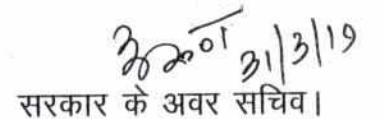 31/3/19
सरकार के अवर सचिव।